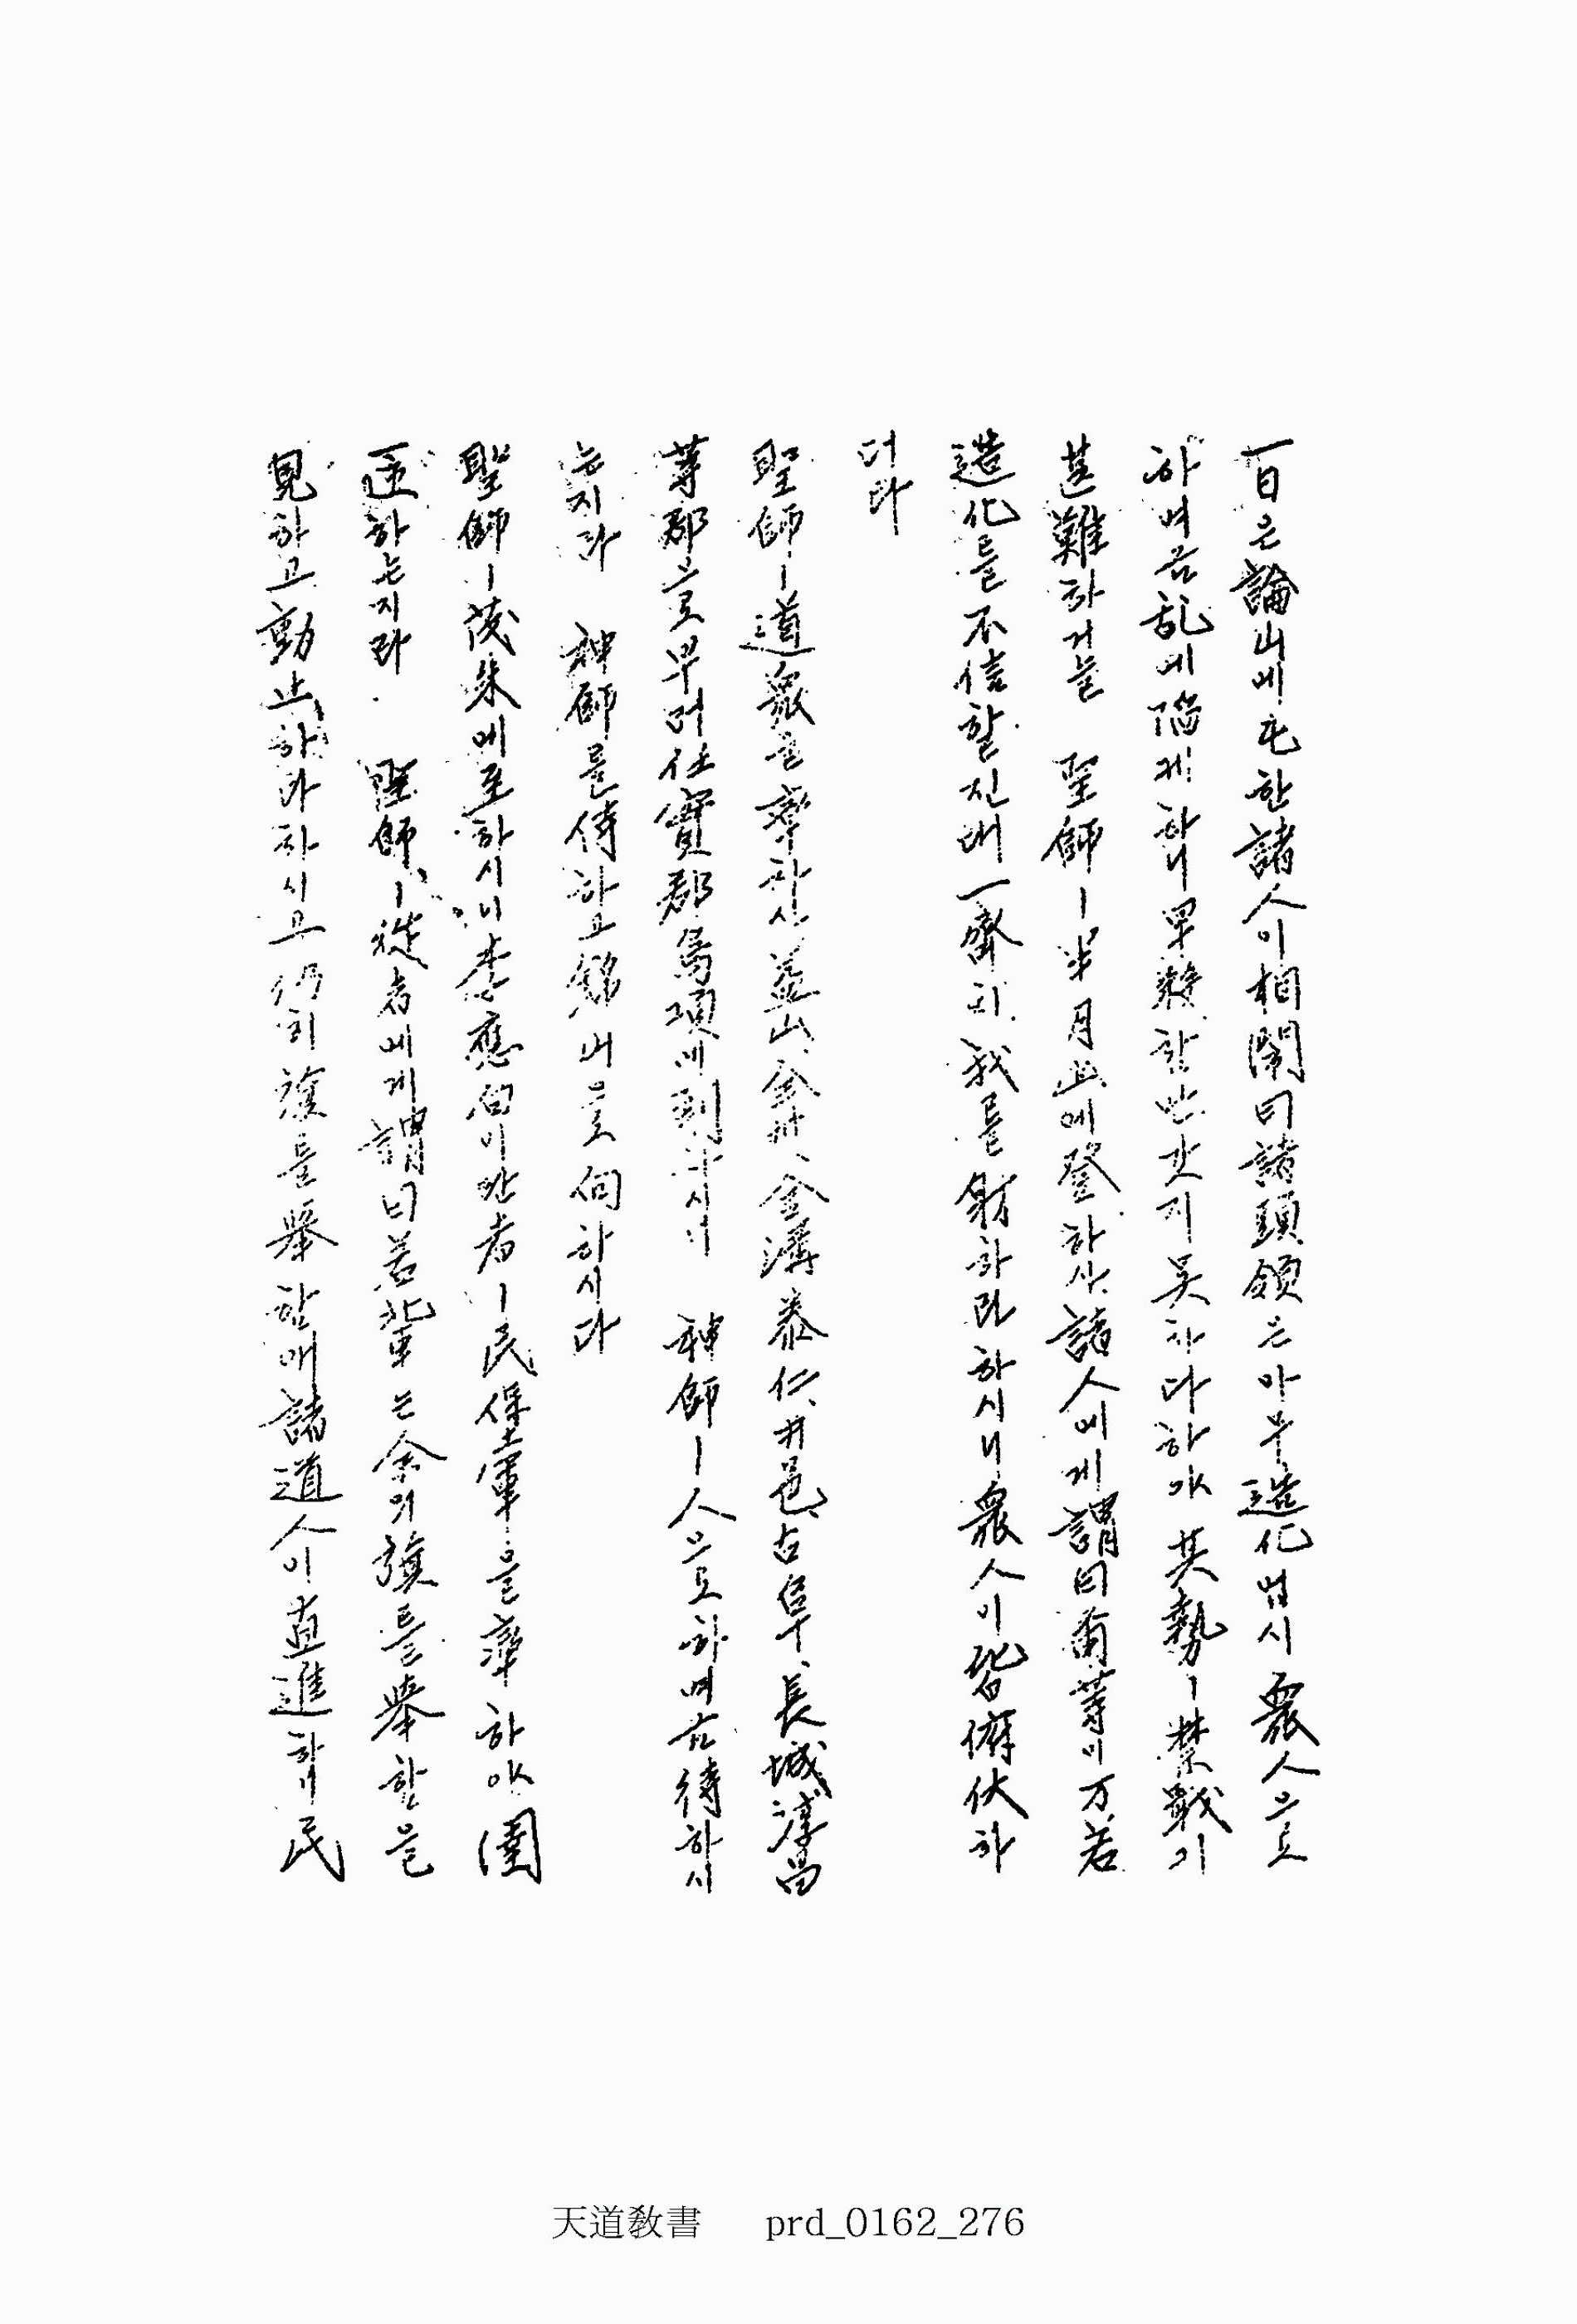 一日은論山에屯한諸人이相鬧曰諸頭領은아무造化업시衆人으로
하여금乱에陷케하니早殺함만갓지못하다하야其勢ㅣ禁戢기
甚難하거늘 聖師ㅣ半月山에登하사諸人에게謂曰爾等이万若
造化를不信할진대一齊히我를射하라하시니衆人이皆俯伏하
더라
聖師ㅣ道衆을率하사益山、金堤、金溝泰仁、井邑、古阜、長城、淳昌
等郡으로부터任實郡鳥項에到하시니 神師ㅣ人으로하여곰待하시
는지라 神師를侍하고錦山으로向하시다
聖師ㅣ茂朱에至하시니李應白이란者ㅣ民堡軍을率하야圍
匝하는지라 聖師ㅣ從者에게謂曰若輩는余의旗를擧함을
見하고動止하라하시고仍히旗를擧함애諸道人이直進하니民
天道敎書 prd_0162_276